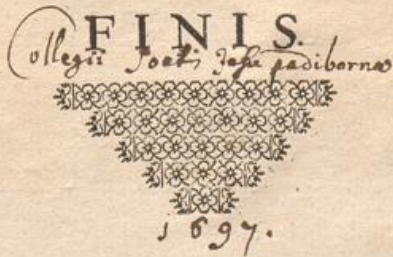 FINIS.
Collegii Socti Jesu padibornæ
1697.